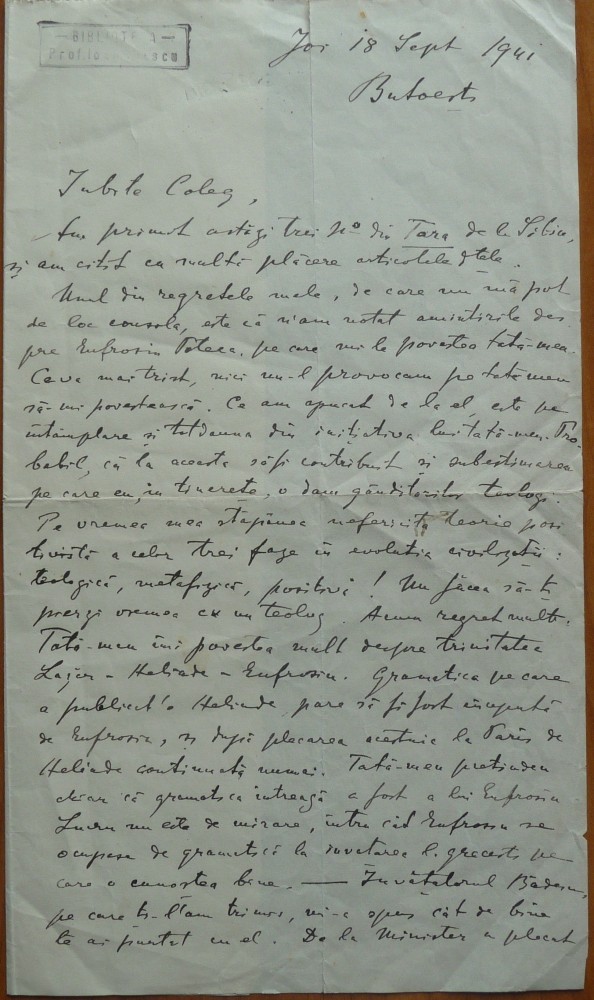 BIBLIOTECA
Joi 18 Sept 1941
Butoești
Iubite Coleg,
Am primit astăzi trei No din Țara de la Sibiu,
și am citit cu multă plăcere articolele dtale.
Unul din regretele mele, de care nu mă pot
de loc consola, este că n'am notat amintirile des
pre Eufrosin Poteca, pe care mi le povestea tată-meu.
Ceva mai trist, nici nu-l provocam pe tată-meu
să-mi povestească. Ce am apucat de la el, este pe
întâmplare și totdeauna din inițiativa lui tată-meu. Pro-
babil, că la aceasta să fi contribuit și subestimarea
pe care eu, în tinerețe, o dam gânditorilor teologi.
Pe vremea mea stăpânea nefericita teorie pozi
tivistă a celor trei faze în evoluția civilizației:
teologică, metafizică, pozitivă! Nu făcea să-ți
pierzi vremea cu un teolog. Acum regret mult.
Tată-meu îmi povestea mult despre trinitatea
Lazăr – Heliade – Eufrosin. Gramatica pe care
a publicat'o Heliade, pare să fi fost începută
de Eufrosin, și după plecarea acestuia la Paris de
Heliade continuată numai. Tată-meu pretindea
chiar că gramatica întreagă a fost a lui Eufrosin.
Lucru nu este de mirare, întru cât Eufrosin se
ocupase de gramatică la învățarea l. grecești pe
care o cunoștea bine. — Învățătorul Bădescu,
pe care ți-l'am trimis, mi-a spus cât de bine
te ai purtat cu el. De la Minister a plecat